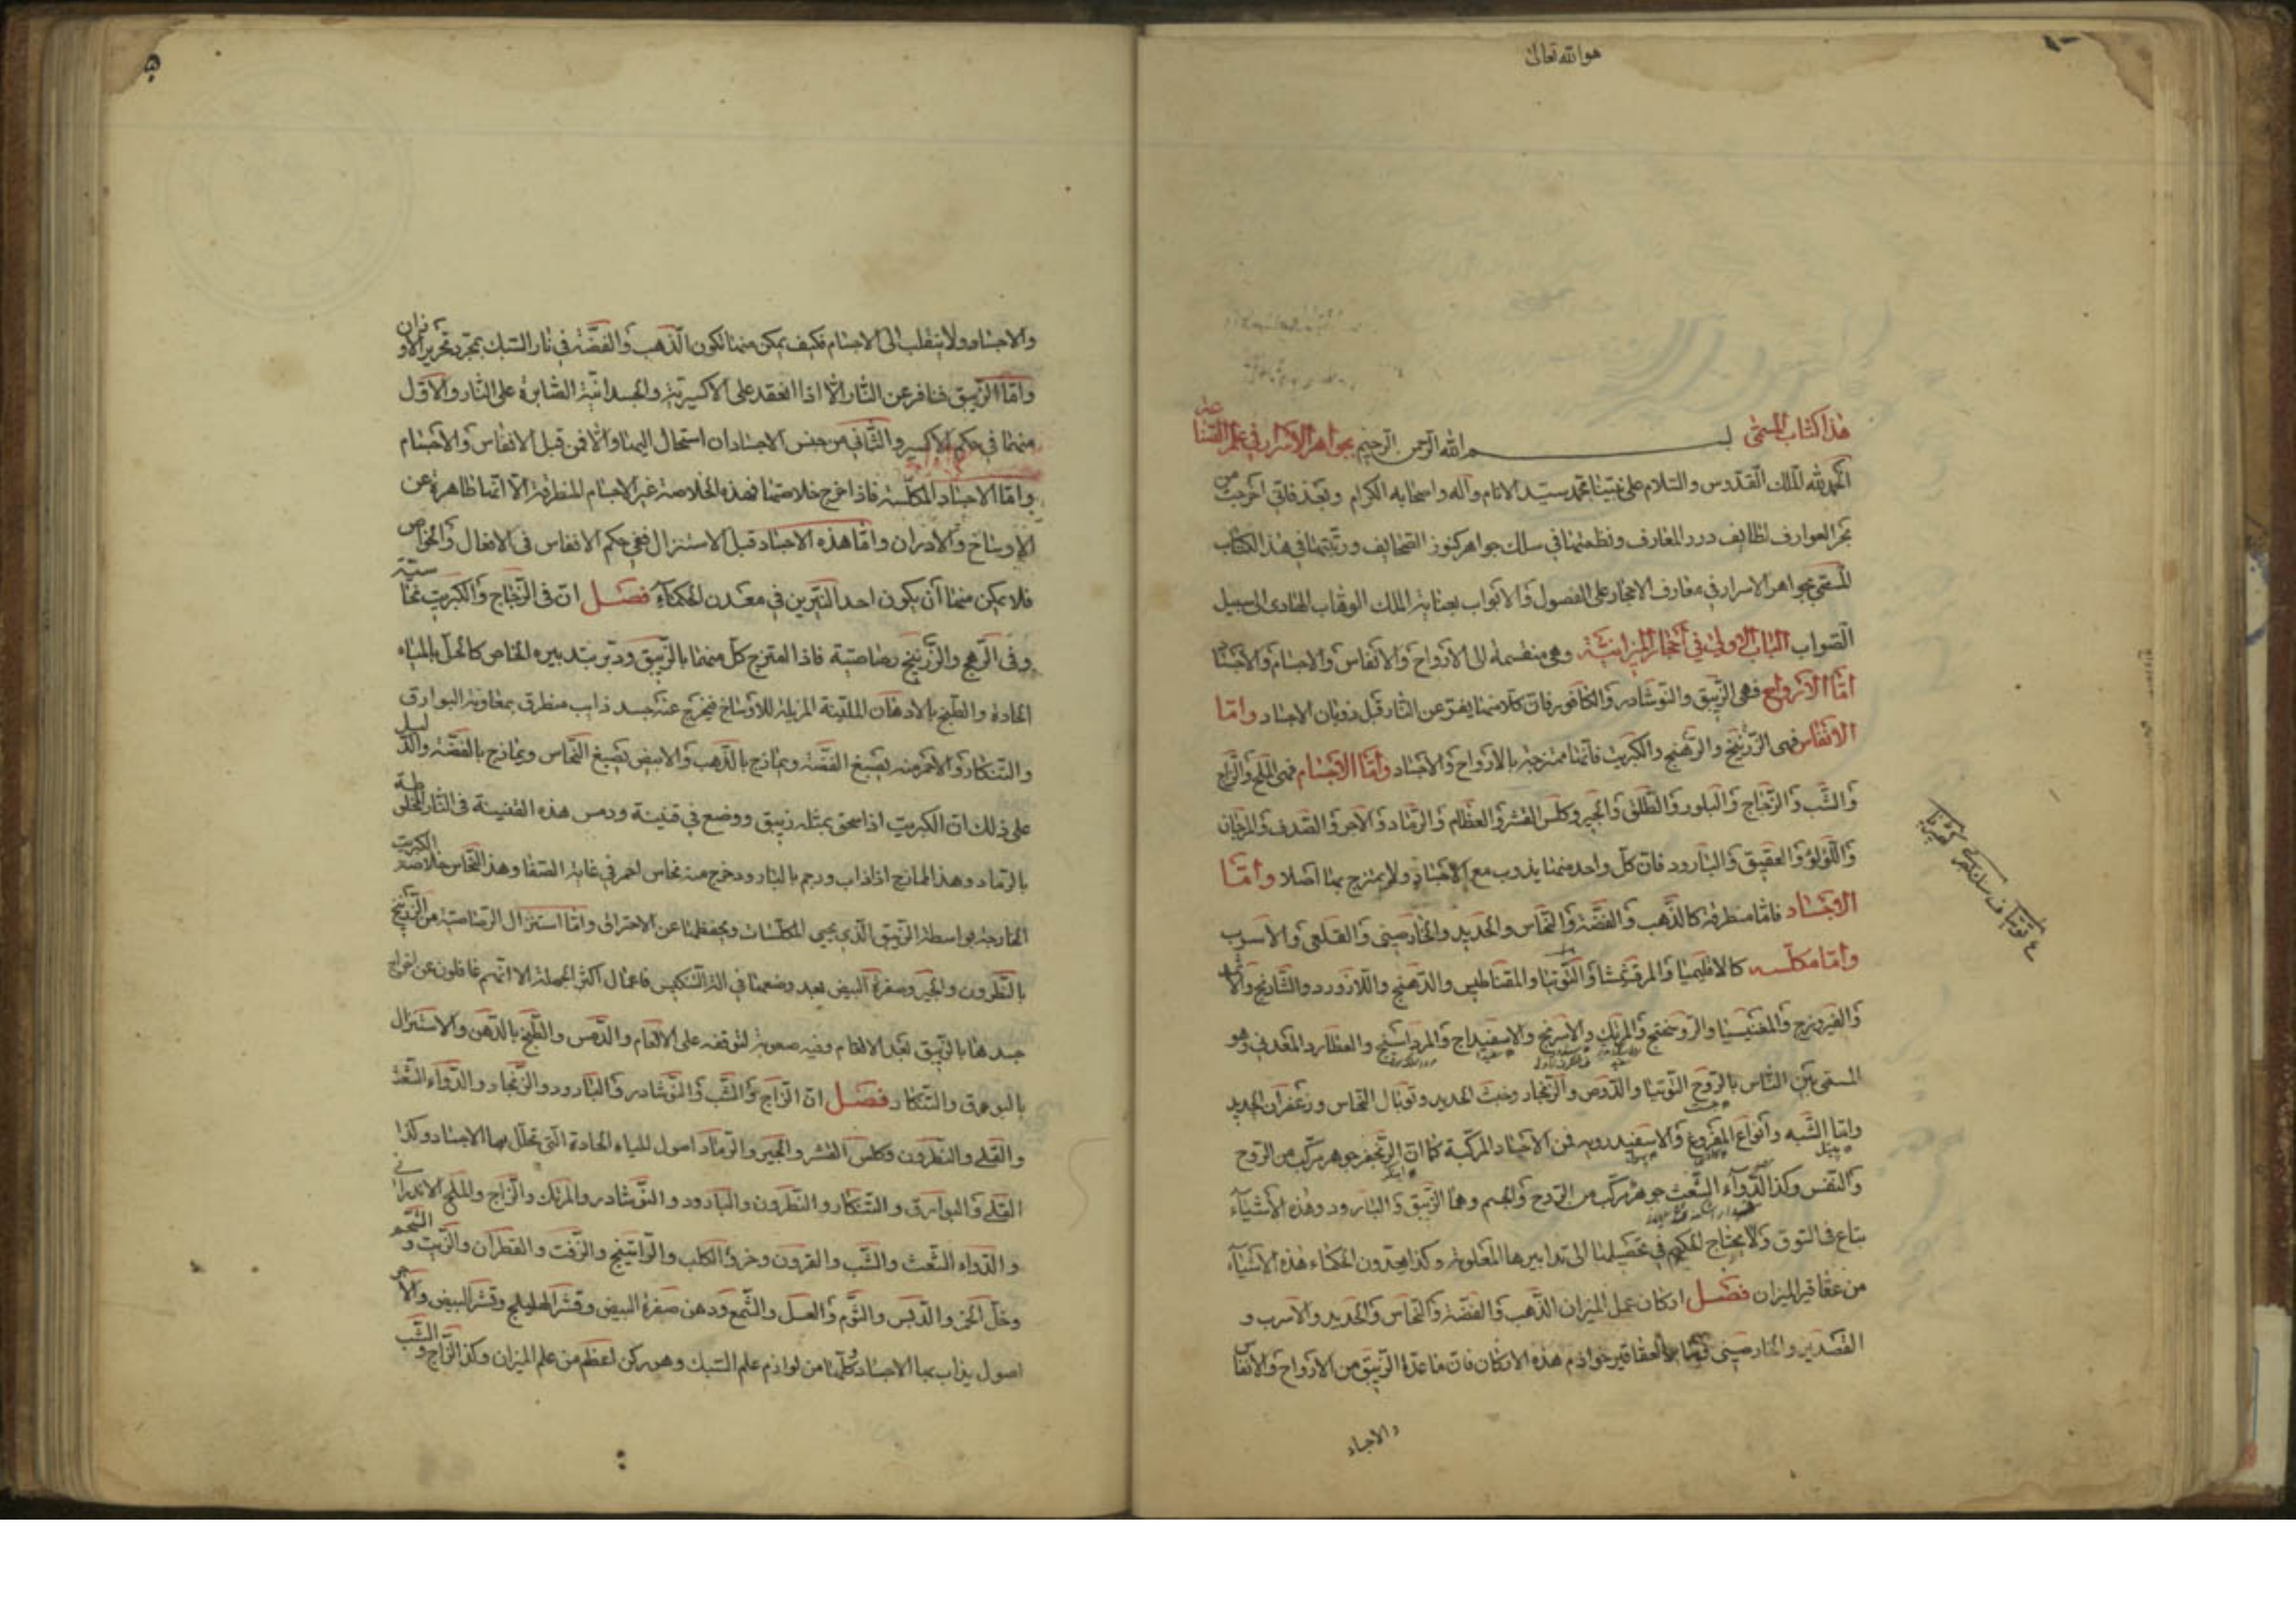 هو الله تعالى
هذا كتاب المسمى بسم الله الرحمن الرحيم بجواهر الاسرار في علم الصناعة
الحمد لله الملك القدوس والسلام على نبينا محمد سيد الانام وآله واصحابه الكرام وبعد فاني اخرجت من
بحر العوارف لطايف درر المعارف ونظمتها في سلك جواهر كنوز الصحايف ورتبتها في هذا الكتاب
المسمى بجواهر الاسرار في معارف الاحجار على الفصول والابواب بعناية الملك الوهاب الهادى الى سبيل
الصواب الباب الاول في احجار الميزانية وهى منقسمة الى الارواح والانفاس والاجسام والاجساد
اما الارواح فهى الزيبق والنوشادر والكافور فان كلا منها يفر عن النار قبل ذوبان الاجساد واما
الانفاس فهى الزرنيخ والرهج والكبريت فانها ممتزجة بالارواح والاجساد واما الاجسام فهى الملح والزاج
والشب والزجاج والبلور والطلق والجير وكلس القشر والعظام والرماد والآجر والصدف والمرجان
واللؤلؤ والعقيق والبارود فان كل واحد منها يذوب مع الاجساد ولا يمتزج بها اصلا واما
الاجساد فاما منطرقة كالذهب والفضة والنحاس والحديد والخارصينى والقلعى والاسرب
واما مكلسه كالاقليميا والمرقشيشا والتوتيا والمقناطيس والدهنج واللازورد والشادنج
والفيروزج والمغنيسيا والروسختج والمرتك والاسرنج والاسفيداج والمرداسنج والعطارد المعدنى وهو
المسمى بين الناس بالروح التوتيا والدوص والزنجار وخبث الحديد وتوبال النحاس وزعفران الحديد
واما الشبه وانواع المفروغ والاسفيدرويه فمن الاجساد المركبة كما ان الزنجفر جوهر مركب من الروح
والنفس وكذا الدوآء الشعث جوهر مركب من الروح والجسم وهما الزيبق والبارود وهذه الاشيآء
يباع فى السوق ولا يحتاج الحكيم في تحصيلها الى تدابيرها المعلومة وكذا يعدون الحكماء هذه الاشيآء
من عقاقير الميزان فصل اركان عمل الميزان الذهب والفضة والنحاس والحديد والاسرب و
القصدير والخارصينى العقاقير خوادم هذه الاركان فان ما عدا الزيبق من الارواح والانفاس
والاجساد
والاجساد ولا ينقلب الى الاجسام فكيف يمكن منها تكون الذهب والفضة في نار السبك بمجرد تحرير الاوزان
واما الزيبق فنافر عن النار الا اذا انعقد على الاكسيرية والجسدانية الصابرة على النار والاول
منهما في حكم الاكسير والثانى من جنس الاجساد ان استحال اليها والا فمن قبل الانفاس والاجسام
واما الاجساد المكلسة فاذا اخرج خلاصتها فهذه الخلاصة غير الاجسام المنطرقة الا انها طاهرة عن
الاوساخ والادران واما هذه الاجساد قبل الاستنزال ففى حكم الانفاس فى الافعال والخواص
فلا يمكن منها ان يكون احد النيرين في معدن الحكمآء فصل ان فى الزجاج والكبريت نحاسية
وفى الرهج والزرنيخ رصاصية فاذا امتزج كل منهما بالزيبق ودبر بتدبيره الخاص كالحل بالمياه
الحادة والطبخ بالادهان الملينة المزيلة للاوساخ فيخرج عنه جسد ذايب منطرق بمعاونة البوارق
والتنكار والاحمر منه يصبغ الفضة ويمازج بالذهب والابيض يصبغ النحاس ويمازج بالفضة والدليل
على ذلك ان الكبريت اذا سحق بمثله زيبق ووضع في قنينة ودمس هذه القنينة فى النار المخلوطة
بالرماد وهذا الممازج اذا ذاب ورجم بالبارود خرج منه نحاس احمر في غاية الصفا وهذا النحاس خلاصة الكبريت
الخارجة بواسطة الزيبق الذى يحيى المكلسات ويحفظها عن الاحتراق واما استنزال الرصاصية من الزرنيخ
بالنطرون والجير وصفرة البيض بعد وضعها في آلة التنكيس فاعمال اكثر الجهلة الا انهم غافلون عن اخراج
جسدها بالزيبق بعد الالغام وفيه صعوبة لتوقفه على الالغام والدمس والطبخ بالدهن والاستنزال
بالبورق والتنكار فصل ان الزاج والشب والنوشادر والبارود والزنجار والدواء الشعث
والقلى والنطرون وكلس القشر والجير والرماد اصول للمياه الحادة التى تحلل بها الاجساد وكذا
القلى والبوارق والتنكار والنطرون والبارود والنوشادر والمرتك والزاج والملح الاندرانى
والدواء الشعث والشب والقرون وخرؤ الكلب والراتينج والزفت والقطران والزيت والشحم
وخل الخمر والدبس والثوم والعسل والشمع ودهن صفرة البيض وقشر الهليلج وقشر البيض والآجر
اصول يذاب بها الاجساد وكلها من لوازم علم السبك وهو ركن اعظم من علم الميزان وكذا الزاج والشب